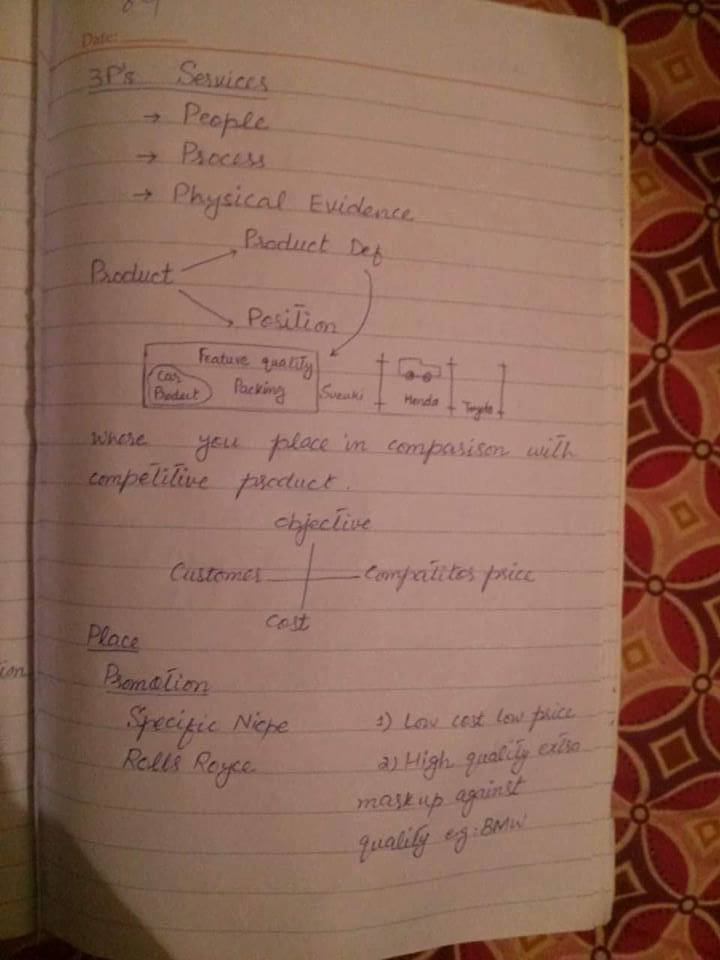 Date:
3P's Services
→ People
→ Process
→ Physical Evidence
Product Def
Product
Position
Feature quality
Car
Product
Packing
Suzuki
Honda
Toyota
where you place in comparison with
competitive product.
Objective
Customer
Compatitor price
Cost
Place
Promotion
Specific
1) Low cost low price
Rolls Royce
2) High quality extra
markup against
quality eg: BMW